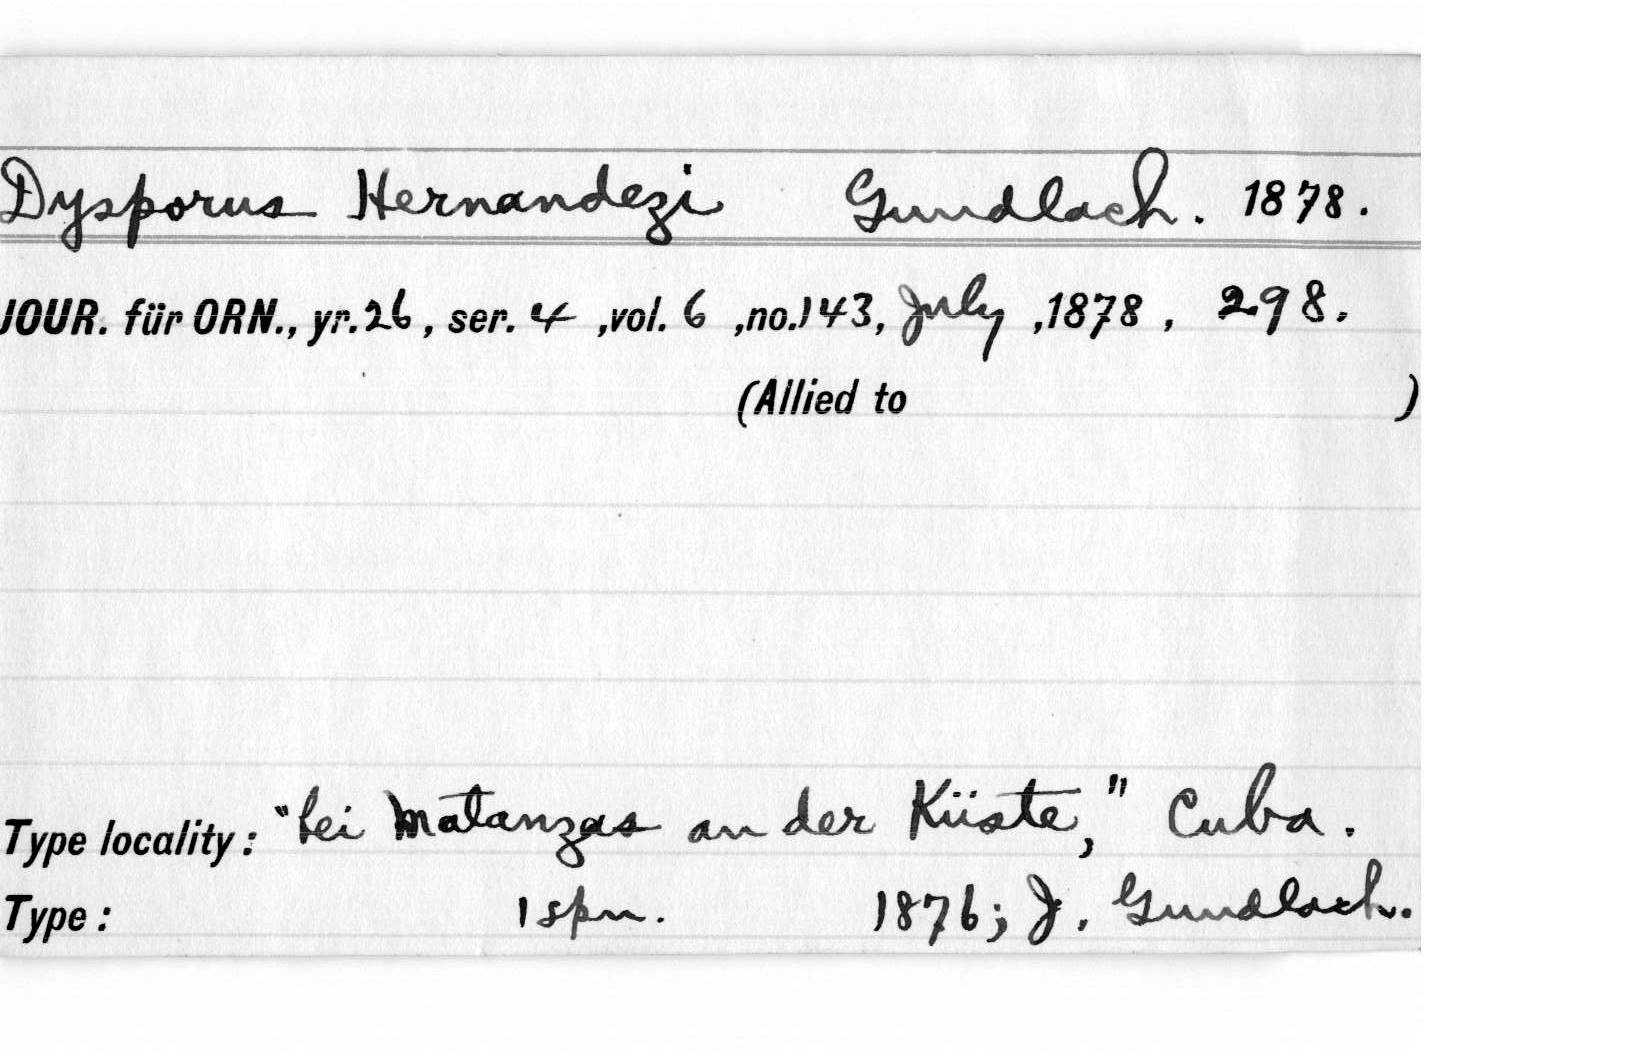 Dysporus Hernandezi Gundlach. 1878.
JOUR. für ORN., yr. 26, ser. 4, vol. 6, no. 143, July, 1878, 298.
(Allied to )
Type locality: "bei Matanzas an der Küste," Cuba.
Type: 1 spn. 1876; J. Gundlach.